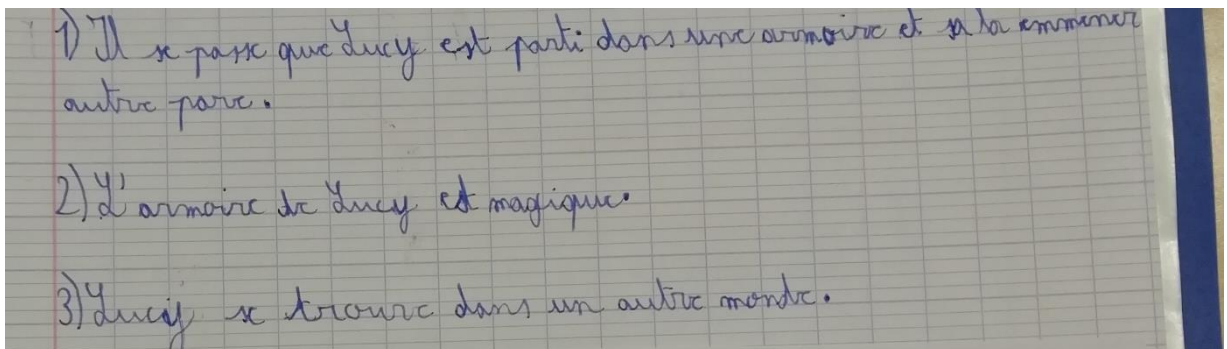 1) Il se passe que Lucy est parti dans une armoire et sa la emmener
autre pare.
2) L'armoire de Lucy est magique.
3) Lucy se trouve dans un autre monde.